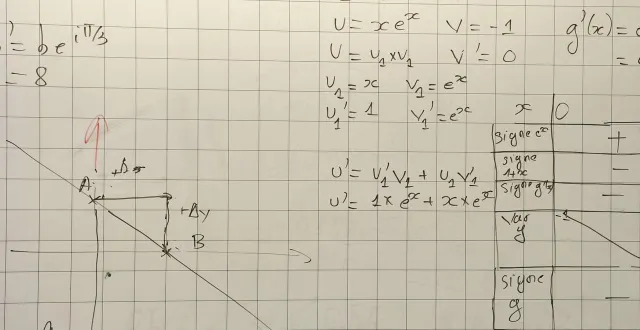 ' = be^{iπ/3}
= 8
U = xe^x V = -1
U = U₁×V₁ V' = 0
U₁ = x V₁ = e^x
U₁' = 1 V₁' = e^x
U' = U₁'V₁ + U₁V₁'
U' = 1×e^x + x×e^x
g'(x) =
=
x 0
signe e^x +
signe 1+x −
signe g'(x) −
var g -1
signe g −
A
+Δx
+Δy
B